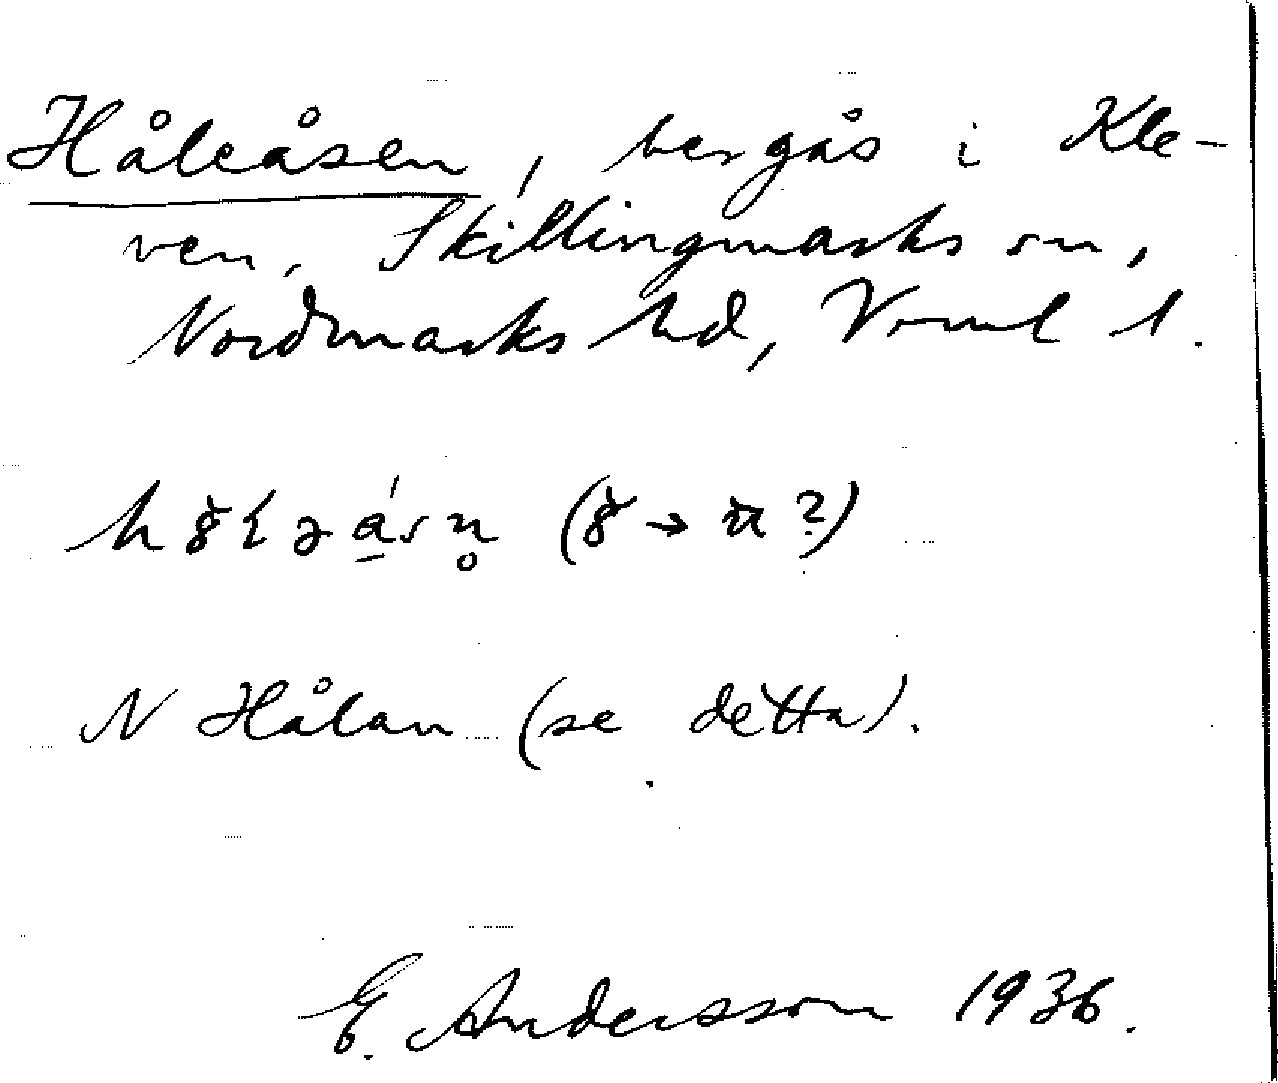 Håleåsen, bergås i Kle-
ven, Skillingmarks sn,
Nordmarks hd, Vrml l.
N Hålan (se detta).
E. Andersson 1936.